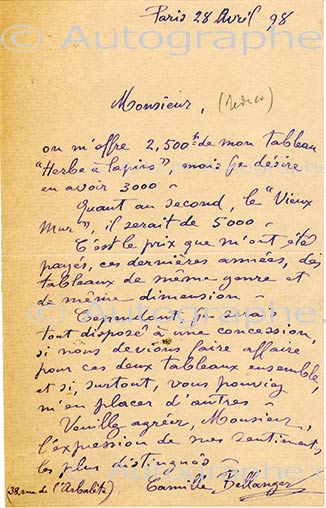 © Autographe
Paris 28 Avril 98
Monsieur,
on m'offre 2,500f de mon tableau
"Herbe à lapins", mais je désire
en avoir 3000 -
Quant au second, le "Vieux
Mur", il serait de 5000 -
C'est le prix que m'ont été
payés, ces dernières années, des
tableaux de même genre et
de même dimension -
Cependant, je suis
tout disposé à une concession,
si nous devions faire affaire
pour ces deux tableaux ensemble,
et si, surtout, vous pouviez
m'en placer d'autres -
Veuillez agréer, Monsieur,
l'expression de mes sentiments
les plus distingués -
(38, rue de l'Arbalète) Camille Bellanger